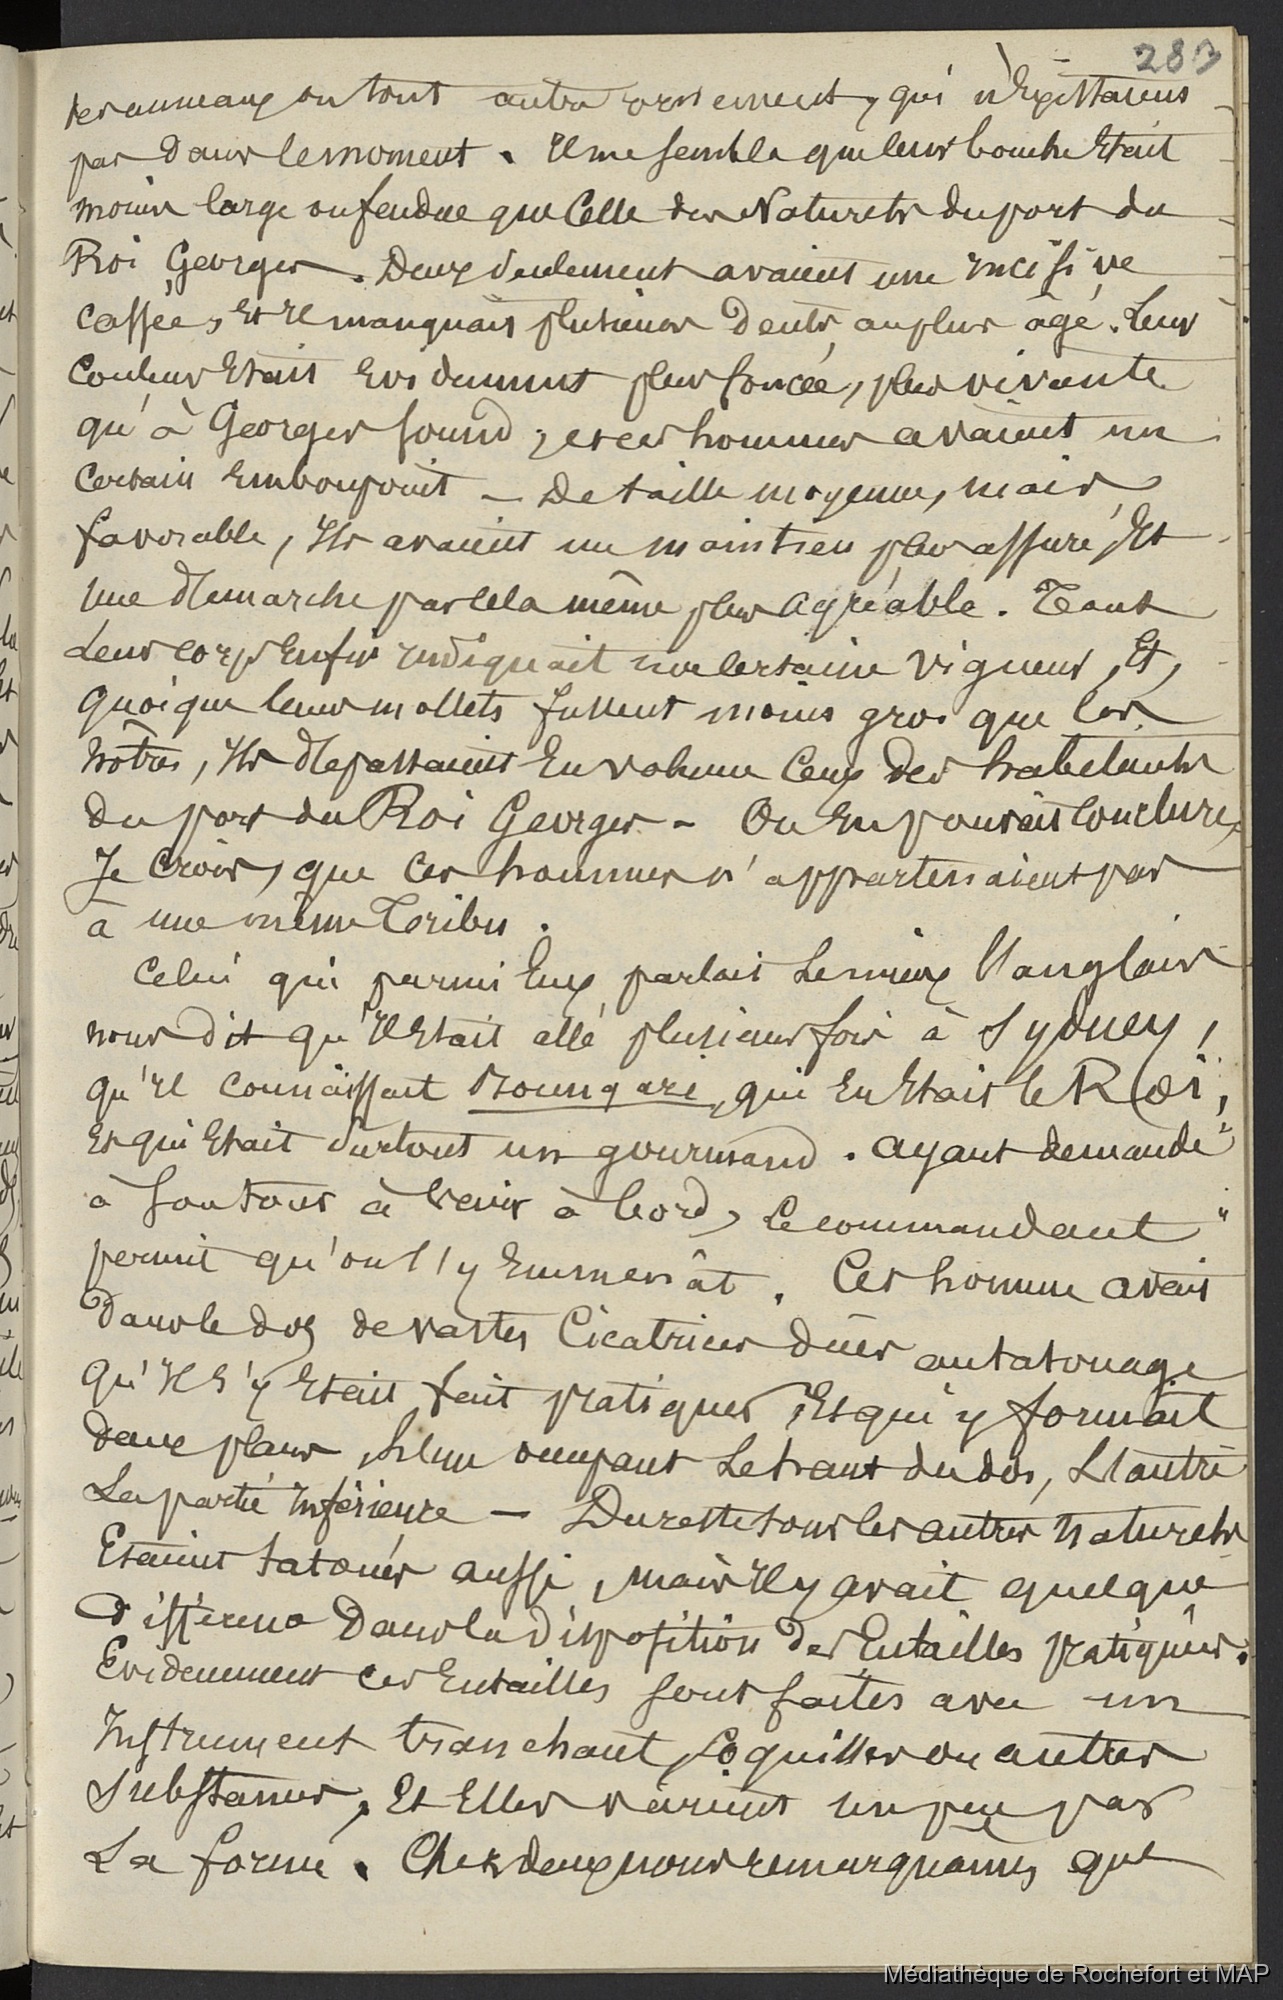 283
des anneaux ou tout autre ornement, qui n'Existaient
pas dans le moment. Il me semble que leur bouche Etait
moins large ou fendue que Celle des Naturels du port du
Roi Georges. Deux seulement avaient une incisive
Cassée, Et Il manquait plusieurs Dents au plus âgé. Leur
Couleur Etait Evidemment plus foncée, plus vivante
qu'à Georges Sound, et ces hommes avaient un
Certain Embonpoint — De taille moyenne, mais
favorable, Ils avaient un maintien plus assuré, Et
Une démarche par Cela même plus agréable. Tout
Leur corps Enfin indiquait une Certaine vigueur, Et,
quoique leurs mollets fussent moins gros que les
nôtres, Ils dépassaient En volume Ceux des habitants
du port du Roi Georges — On En pouvait Conclure,
Je Crois, que Ces hommes n'appartenaient pas
à une même Tribu.
Celui qui parmi Eux parlait Le mieux l'anglais
nous dit qu'Il Etait allé plusieurs fois à Sydney,
qu'Il connaissait Boungari, qui En Etait le Roi,
Et qui Etait surtout un gourmand. ayant demandé
à son tour à venir à bord, Le commandant
permit qu'on l'y Emmenât. Cet homme avait
Dans le dos de vastes Cicatrices dûes au tatouage
qu'Il s'y Etait fait pratiquer, Et qui y formait
deux plans, l'un occupant Le haut du dos, L'autre
La partie Inférieure — Du reste tous les autres naturels
Etaient tatoués aussi, mais Il y avait quelque
différence Dans la disposition des Entailles pratiquées.
Evidemment ces Entailles sont faites avec un
Instrument tranchant, Coquilles ou autres
Substances, Et Elles varient un peu par
La forme. Chez deux nous remarquames que
Médiathèque de Rochefort et MAP